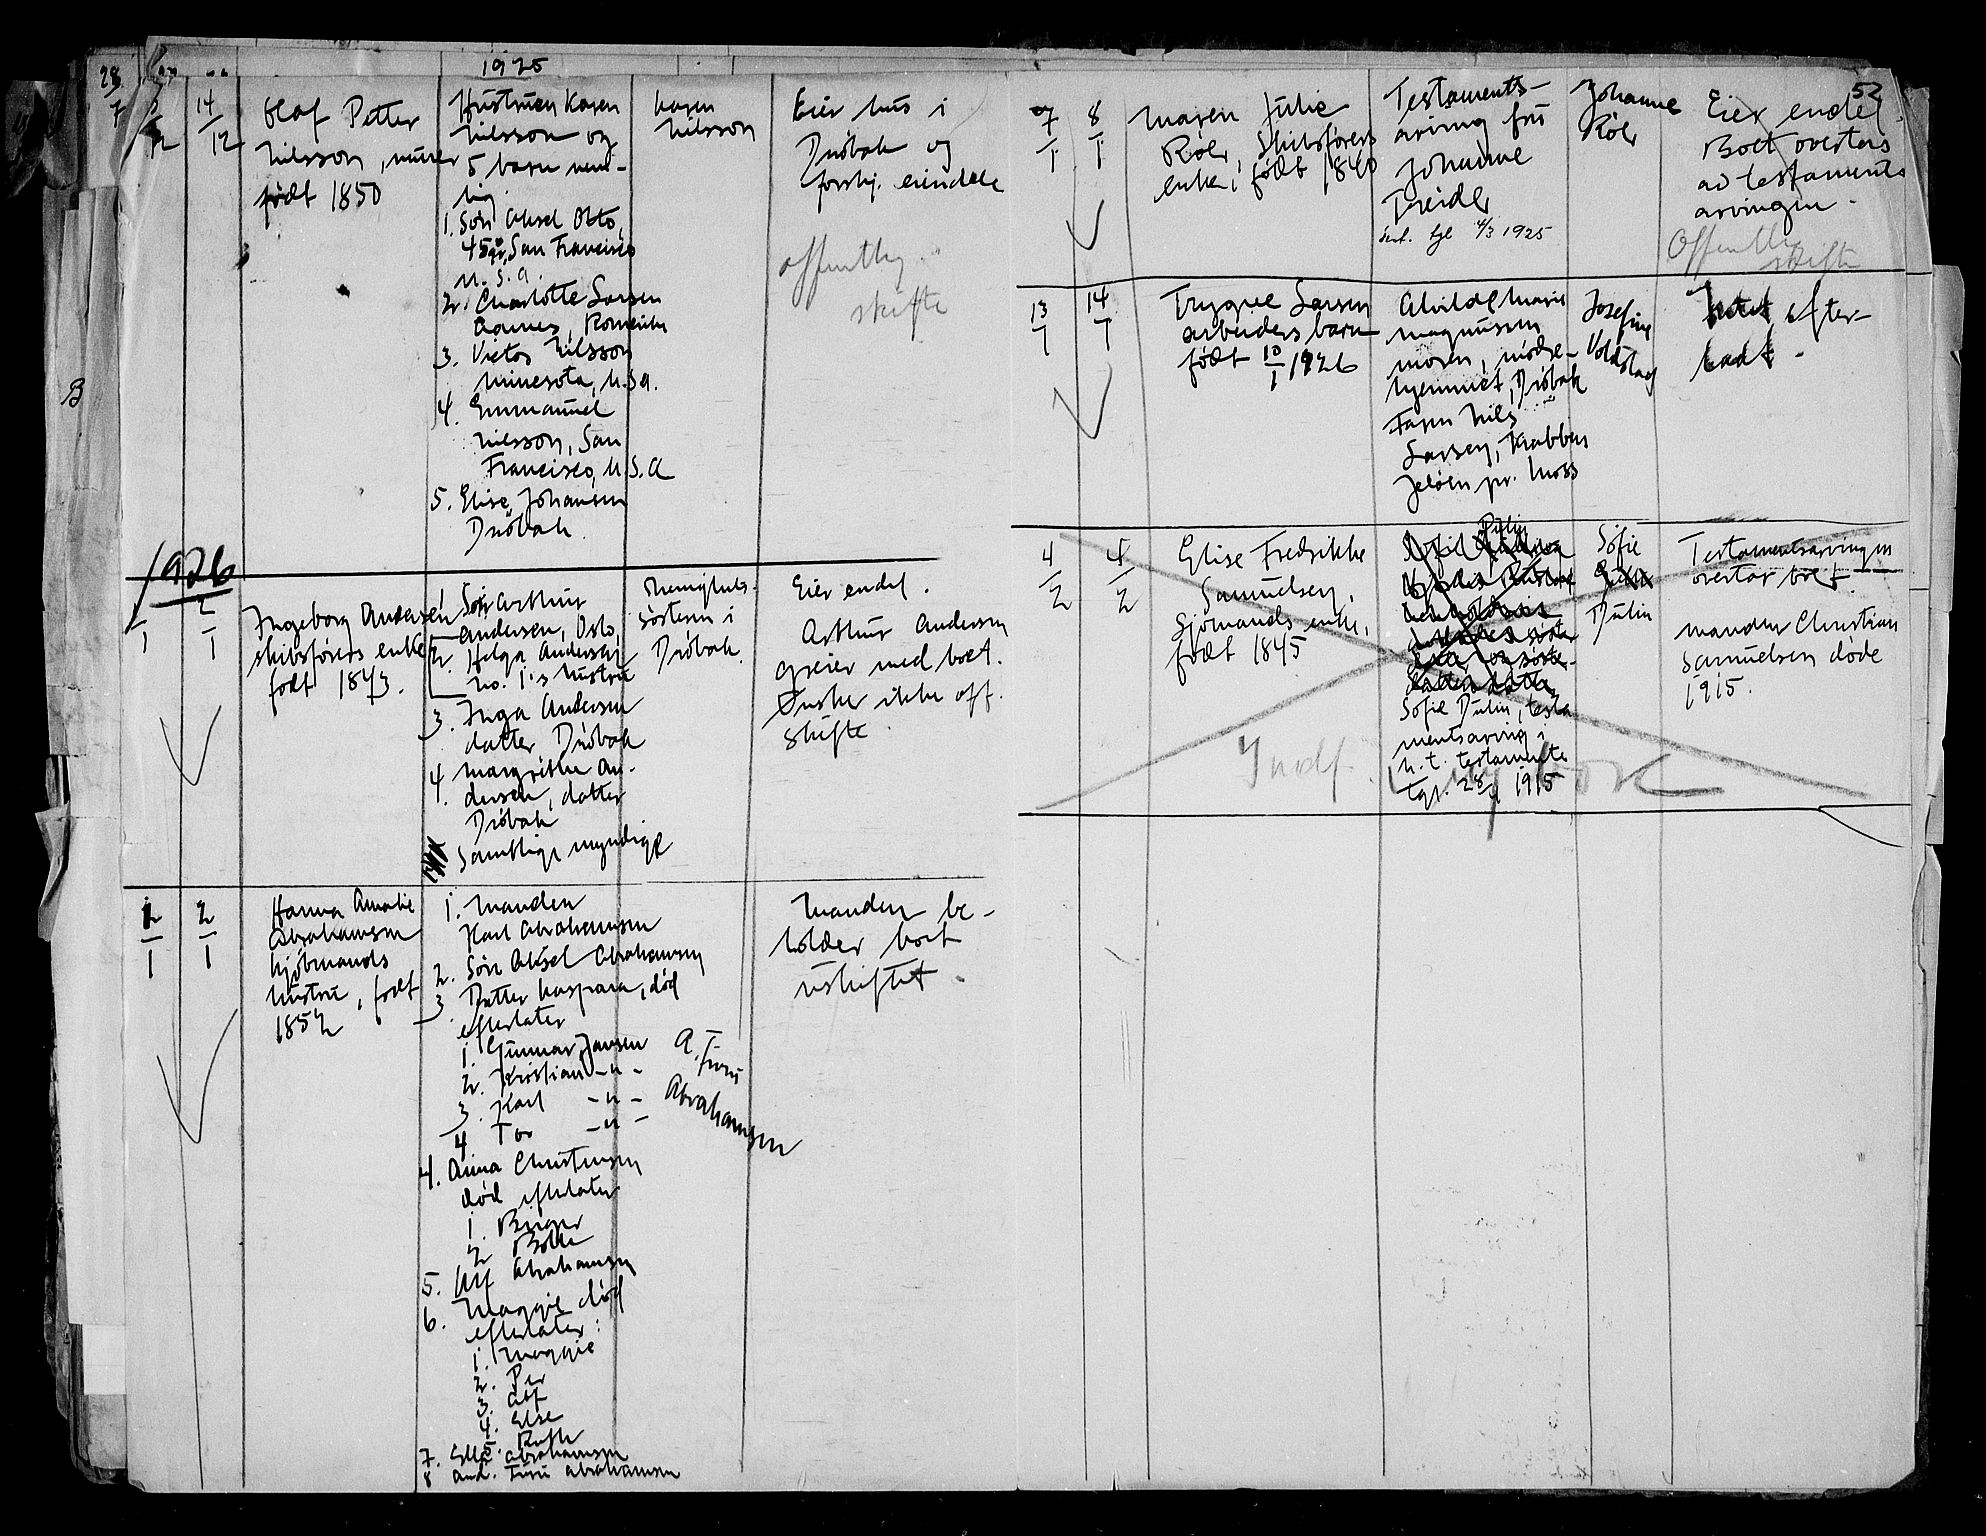 1925
52
14/12
Olaf Petter
Nilsson, murer
født 1850
Hustruen Karen
Nilsson og
5 barn nem-
lig
1. Søn Aksel Otto,
45 år, San Francisco
U.S.A
2. Charlotte Larsen
Agnes,
3. Victor Nilsson
Minesota, U.S.A.
4. Emmanuel
Nilsson, San
Francisco, U.S.A
5. Elise Johansen
Drøbak
Karen
Nilsson
Eier hus i
Drøbak og
forskj. eiendele
Offentlig
skifte
1926
2/1
Ingeborg Andersen
skibsførers enke
født 1843.
Søn Arthur
Andersen, Oslo,
2. Helga Andersen
No. 1's hustru
3. Inga Andersen
datter Drøbak
4. Margrethe An-
dersen, datter
Drøbak
Samtlige myndige
Menigheds-
søsteren i
Drøbak
Eier endel.
Arthur Andersen
greier med boet.
Ønsker ikke off.
skifte
2/1
Hanna Amalie
Abrahamsen
kjøbmands
hustru, født
1852
1. Manden
Karl Abrahamsen
2. Søn Aksel Abrahamsen
3. Datter Kaspara, død
efterlater
1. Gunnar Jansen
2. Kristian -"-
3. Karl -"-
4 Tor -"-
4. Anna Christensen
død efterlater
1. Birger
2
5. Alf Abrahamsen
6. Maggie død
efterlater:
1. Maggie
2. Per
3. Alf
4. Else
5. Ruth
7. Ella Abrahamsen
8 And. Furu Abrahamsen
A. Furu
Abrahamsen
Manden be-
holder boet
uskiftet.
7/1
8/1
Maren Julie
Röer, Skibsførers
enke, født 1840
Testaments-
arving fru
Johanne
Treider
1925
Johanne
Röer
Eier endel.
Boet overtas
av testaments
arvingen.
Offentlig
skifte
13/1
14/1
Trygve Larsen
arbeiders barn
født 10/1 1926
Alvilde Marie
Magnussen
moren, mødre-
hjemmet, Drøbak
Faren Nils
Larsen, Krabben
Jeløen pr. Moss
Josefine
Voldstad
Intet efter-
ladt.
4/2
4/2
Elise Fredrikke
Samuelsen,
Sjömands enke,
født 1845
Sofie Dulin, testa
mentsarving i
h.t. testamente
tgl. 28/9 1915
Sofie
Dulin
Testamentsarvingen
overtar boet
Manden Christian
Samuelsen døde
1915.